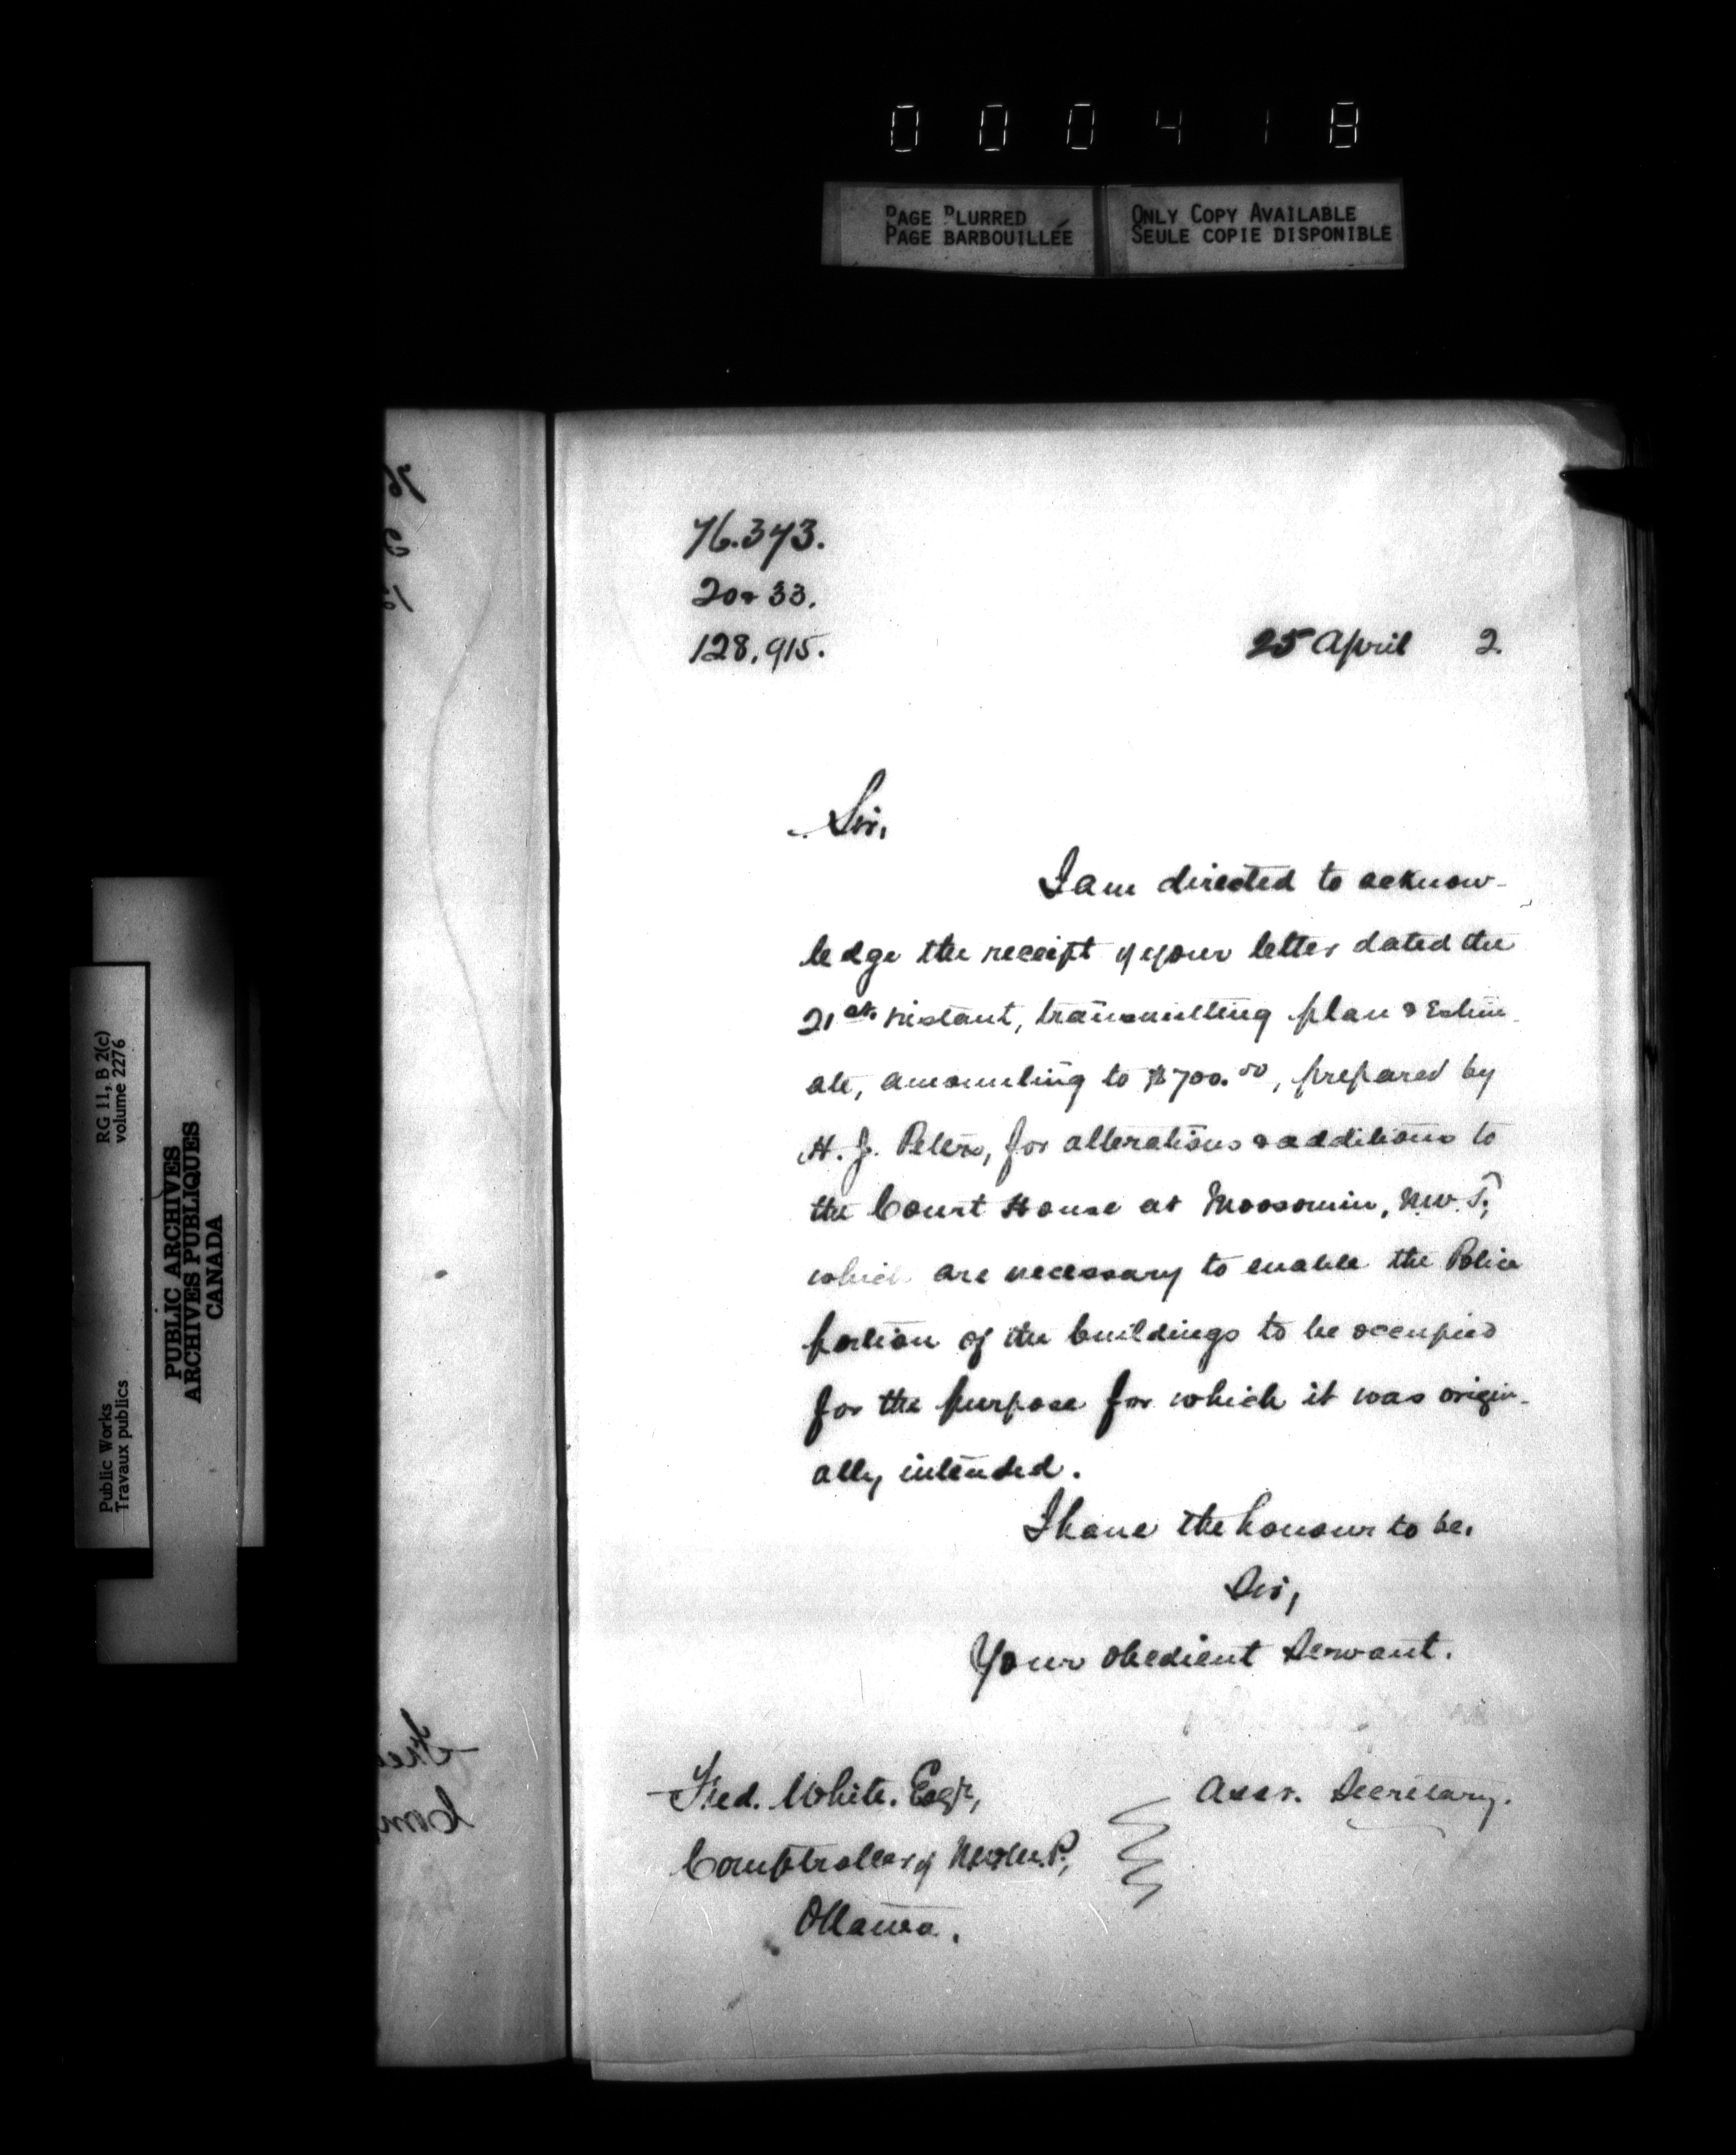 000418
PAGE BLURRED
PAGE BARBOUILLÉE
ONLY COPY AVAILABLE
SEULE COPIE DISPONIBLE
76.373.
20 & 33.
128,915.
25 April 2.
Sir,
I am directed to acknow-
ledge the receipt of your letter dated the
21st instant, transmitting plan & Estim-
ate, amounting to $700.00, prepared by
H. J. Peters, for alterations & additions to
the Court House at Moosomin, N.W.T,
which are necessary to enable the Police
portion of the buildings to be occupied
for the purpose for which it was origin-
ally intended.
I have the honour to be,
Sir,
Your obedient Servant.
Asst. Secretary.
Fred. White. Esqr,
Comptroller of N.W.M.P.,
Ottawa.
RG 11, B 2(c)
volume 2276
Public Works
Travaux publics
PUBLIC ARCHIVES
ARCHIVES PUBLIQUES
CANADA